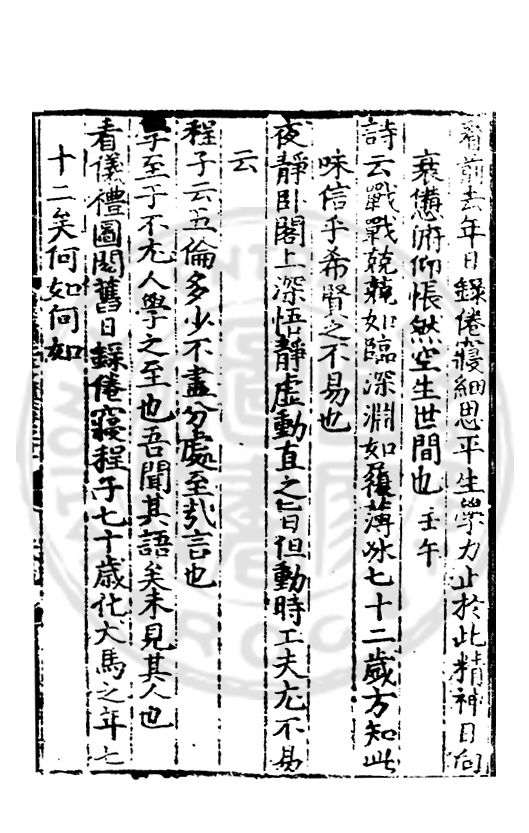 看前去年日錄倦寢細思平生學力止於此精神日向
衰憊俯仰悵然空生世間也 壬午
詩云戰戰兢兢如臨深淵如履薄冰七十二歲方知此
味信乎希賢之不易也
夜靜卧閣上深悟靜虛動直之旨但動時工夫尤不易
云
程子云五倫多少不盡分處至哉言也
學至于不尤人學之至也吾聞其語矣未見其人也
看儀禮圖閱舊日錄倦寢程子七十歲化犬馬之年七
十二矣何如何如